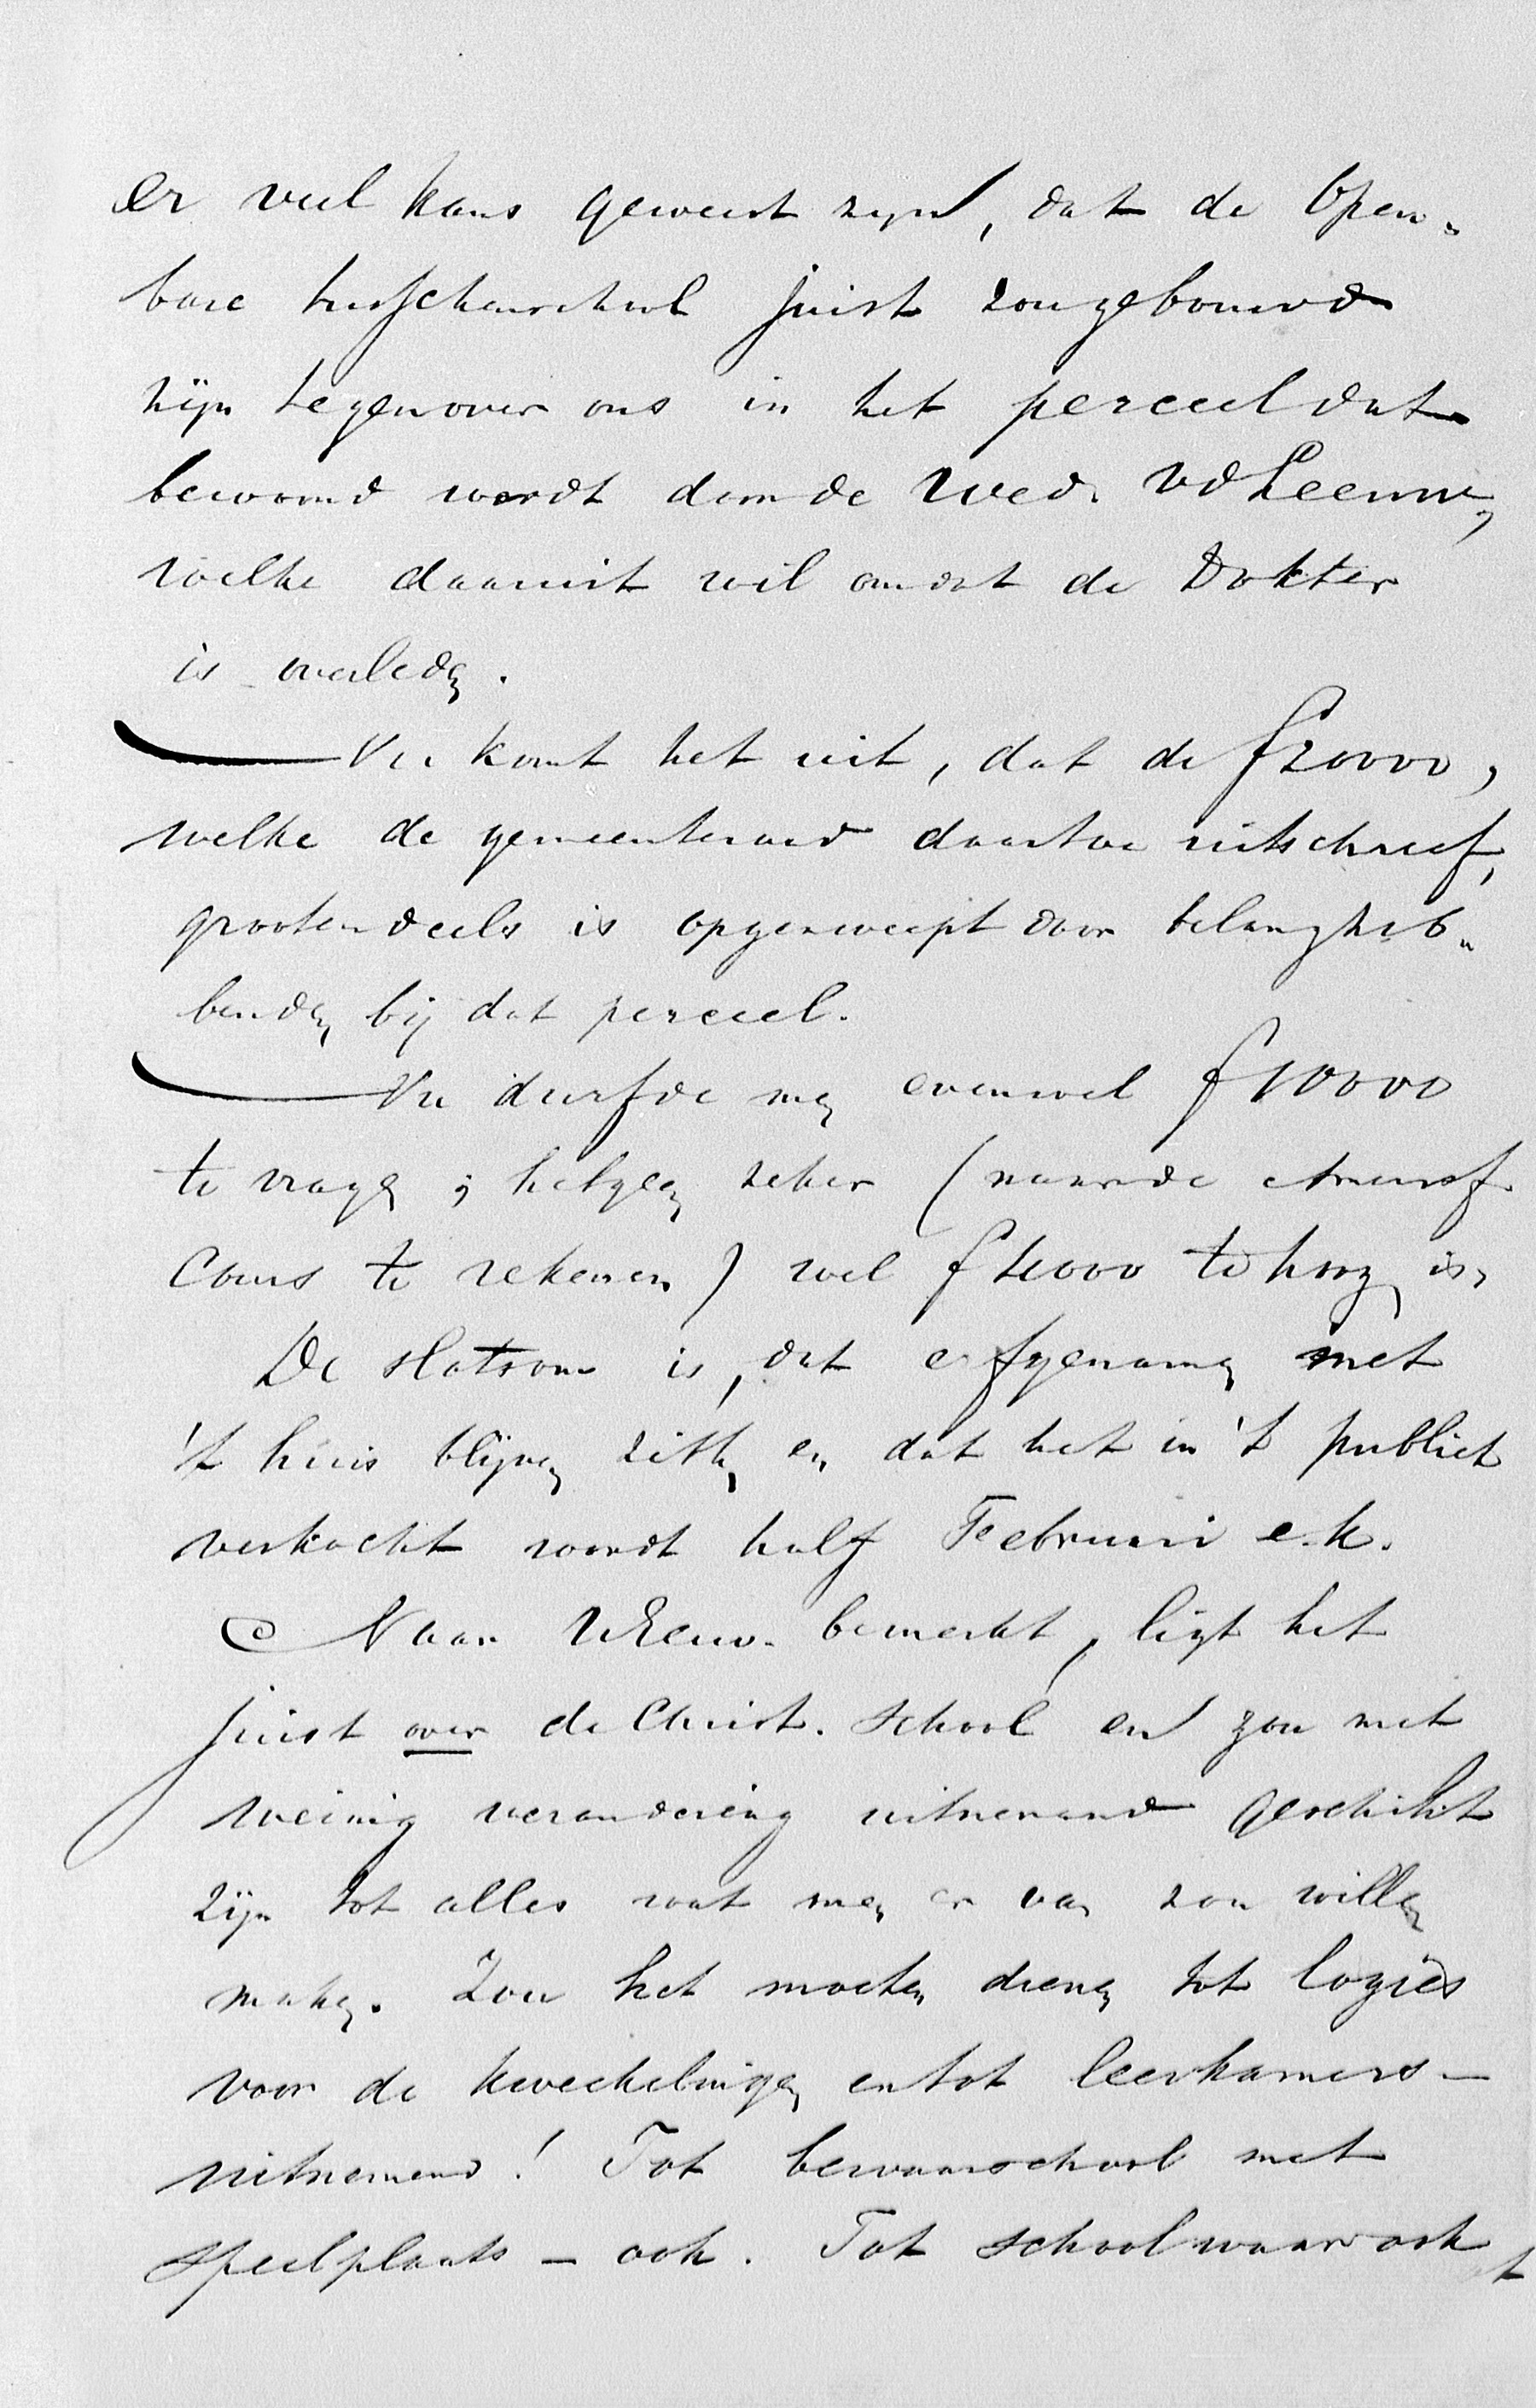 er veel kans geweest zyn, dat de Open-
bare tusschenschool juist zou gebouwd
zijn tegenover ons in het perceel dat
bewoond wordt door de Wed. vd Leeuw,
welke daaruit wil omdat de Dokter
is overleden.
Nu komt het uit, dat de f20000,
welke de gemeenteraad daartoe uitschreef,
grootendeels is opgezweept door belangheb-
benden bij dat perceel.
Nu durfde men evenwel f 10000
te vragen; hetgeen zeker (naar de
Cours te rekenen) wel f 4000 te hoog is,
De slotsom is, dat erfgenamen met
't huis blijven zitten en dat het in 't publiek
verkocht wordt half Februari e.k.
Naar UEerw. bemerkt, ligt het
juist over de Christ. School en zou met
weinig verandering uitnemend geschikt
zijn tot alles wat men er van zou willen
maken. Zou het moeten dienen tot logies
voor de kweekelingen en tot leerkamers –
uitnemend! Tot bewaarschool met
speelplaats – ook. Tot school waar ook